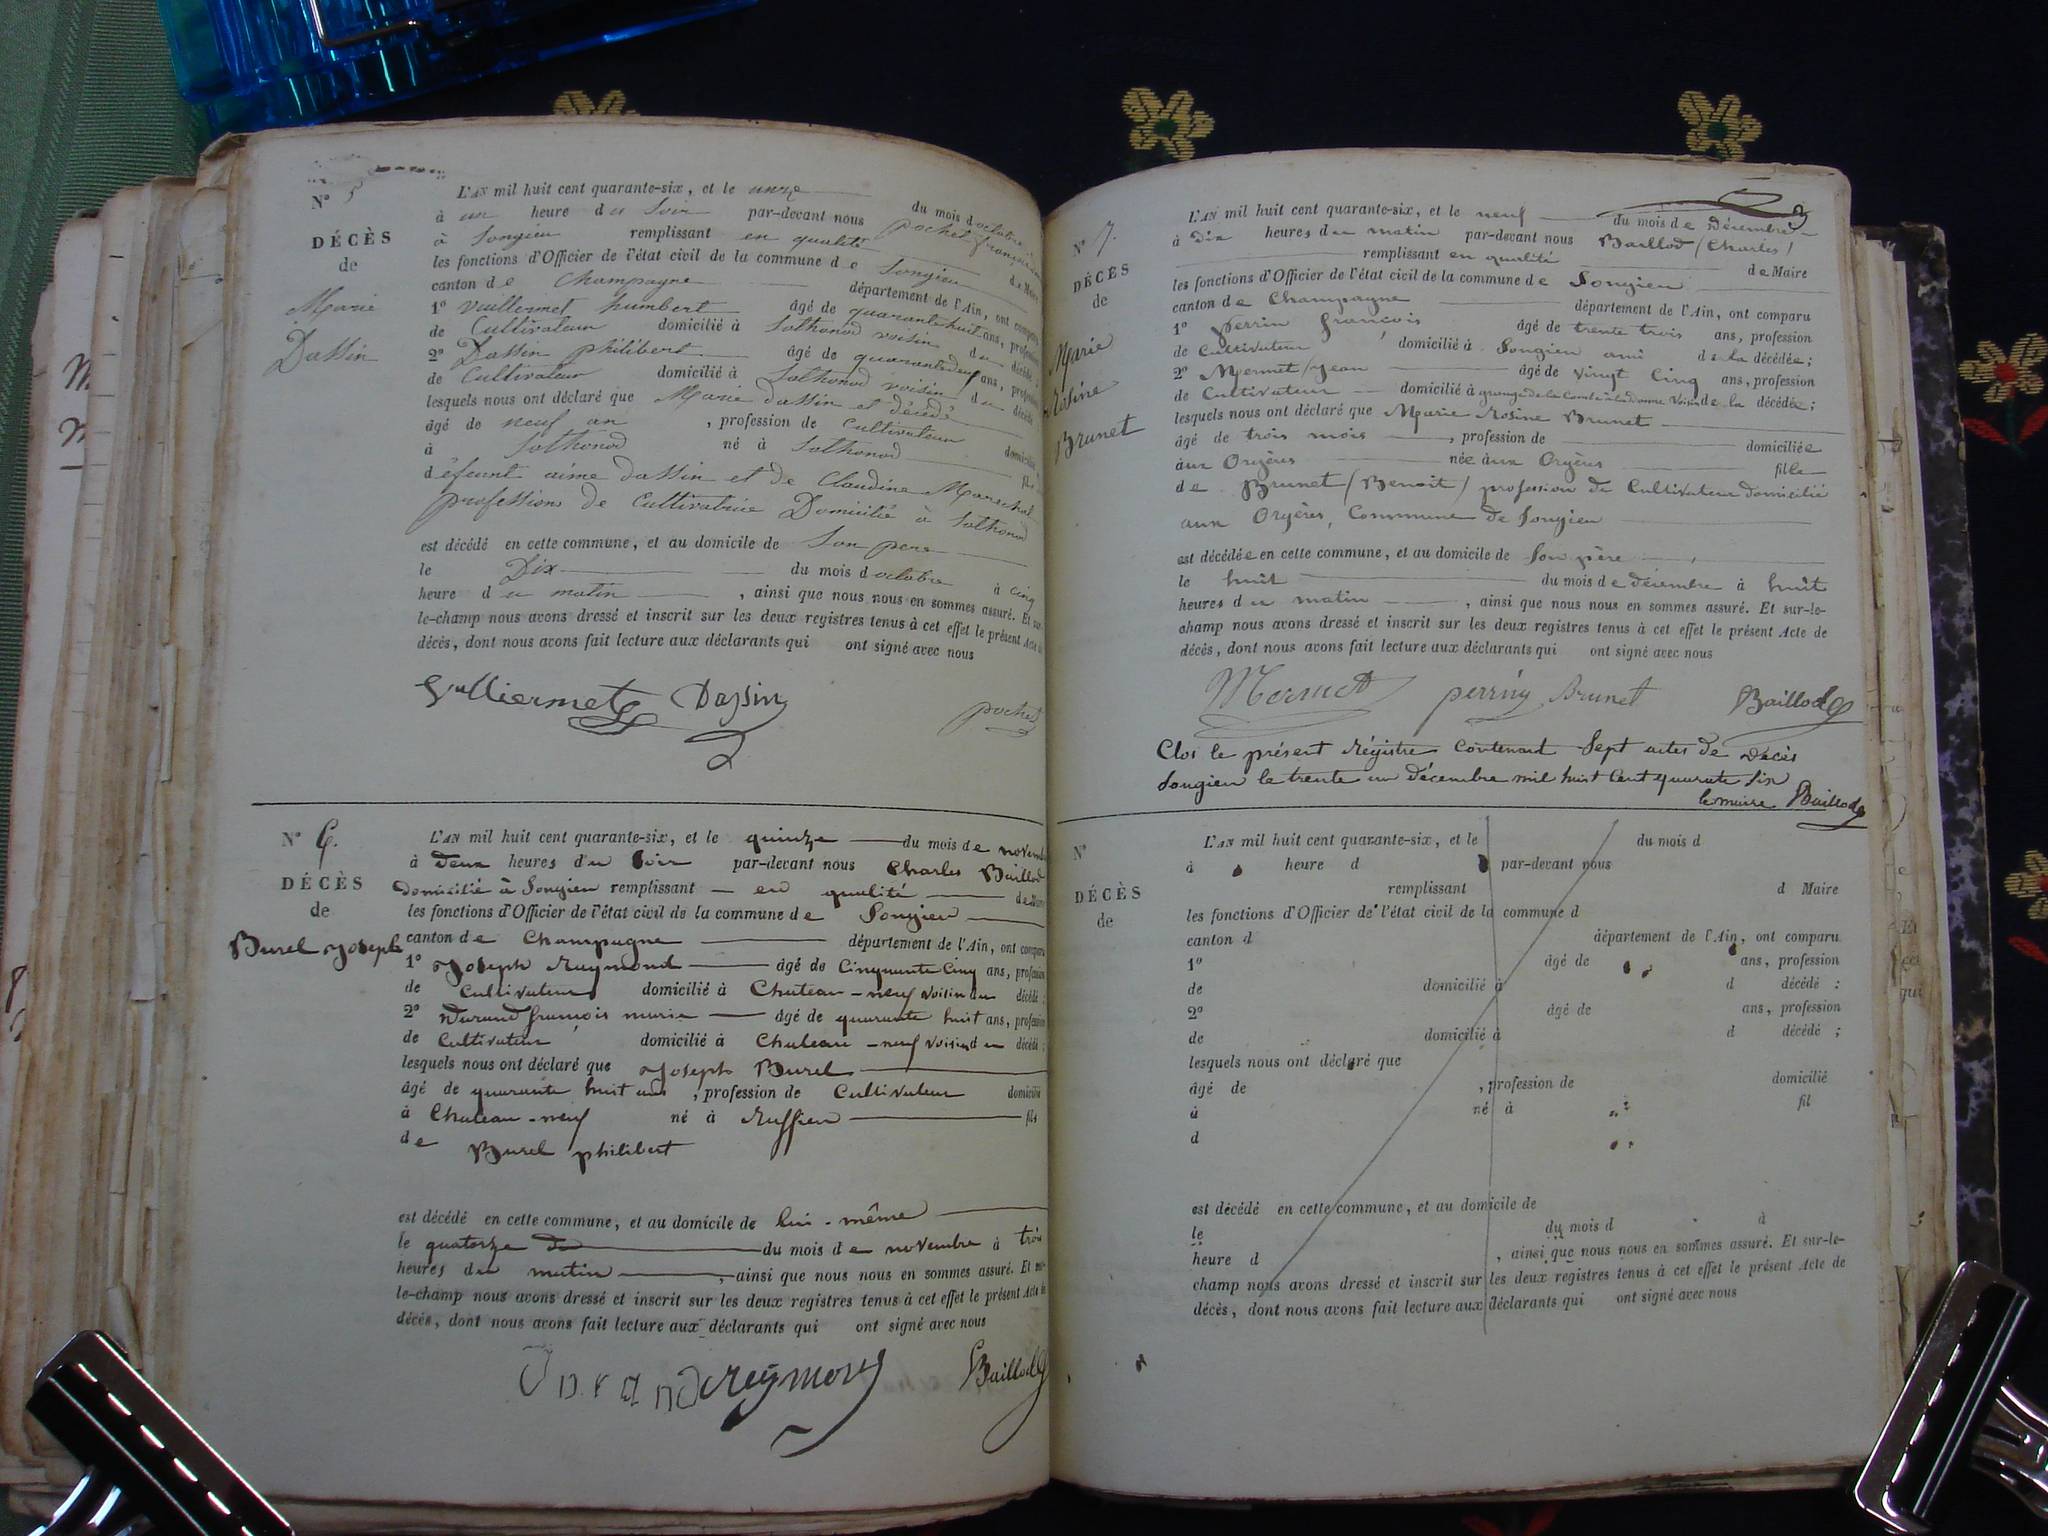 N° 5
DÉCÈS
de
Marie
Dassin
L'AN mil huit cent quarante-six, et le unze du mois d octobre
à un heure du soir par-devant nous pochet françois
à Songieu remplissant en qualité de Maire
les fonctions d'Officier de l'état civil de la commune de Songieu
canton de Champagne département de l'Ain, ont comparu
1° Vuillermet humbert âgé de quarante huit ans, profession
de Cultivateur domicilié à Sothonod voisin du décédé
2° Dassin philibert âgé de quarante deux ans, profession
de Cultivateur domicilié à Sothonod voisin du décédé
lesquels nous ont déclaré que Marie dassin et décédé
âgé de neuf an , profession de Cultivateur
à Sothonod né à Sothonod domicilié
défeunt aime dassin et de Claudine Marechal
profession de Cultivatrice Domicilié à Sothonod
est décédé en cette commune, et au domicile de Son pere
le Dix du mois d octobre à cinq
heure du matin , ainsi que nous nous en sommes assuré. Et sur-
le-champ nous avons dressé et inscrit sur les deux registres tenus à cet effet le présent Acte de
décès, dont nous avons fait lecture aux déclarants qui ont signé avec nous
Vulliermet Dassin pochet
N° 6.
DÉCÈS
de
Burel Joseph
L'AN mil huit cent quarante-six, et le quinze du mois de novembre
à deux heures du Soir par-devant nous Charles Baillod
domicilié à Songieu remplissant en qualité de Maire
les fonctions d'Officier de l'état civil de la commune de Songieu
canton de Champagne département de l'Ain, ont comparu
1° Joseph Reymond âgé de Cinquante Cinq ans, profession
de Cultivateur domicilié à Chateau-neuf voisin du décédé ;
2° Durand françois marie âgé de quarante huit ans, profession
de Cultivateur domicilié à Chateau-neuf voisin du décédé ;
lesquels nous ont déclaré que Joseph Burel
âgé de quarante huit ans , profession de Cultivateur domicilié
à Chateau-neuf né à Ruffieu fils
de Burel philibert
est décédé en cette commune, et au domicile de lui-même
le quatorze du mois de novembre à trois
heures du matin , ainsi que nous nous en sommes assuré. Et sur-
le-champ nous avons dressé et inscrit sur les deux registres tenus à cet effet le présent Acte de
décès, dont nous avons fait lecture aux déclarants qui ont signé avec nous
Durand Reymond Baillod
N° 7.
DÉCÈS
de
Marie
Rosine
Brunet
L'AN mil huit cent quarante-six, et le neuf du mois de Décembre
à dix heures du matin par-devant nous Baillod (Charles)
remplissant en qualité de Maire
les fonctions d'Officier de l'état civil de la commune de Songieu
canton de Champagne département de l'Ain, ont comparu
1° perrin françois âgé de trente trois ans, profession
de Cultivateur domicilié à Songieu ami de la décédée ;
2° Mermet (Jean âgé de vingt Cinq ans, profession
de Cultivateur domicilié à grange de la Combe voisin de la décédée ;
lesquels nous ont déclaré que Marie Rosine Brunet
âgé de trois mois , profession de domiciliée
aux Orgères née aux Orgères fille
de Brunet (Benoit) profession de Cultivateur domicilié
aux Orgères, Commune de Songieu
est décédée en cette commune, et au domicile de Son père
le huit du mois de décembre à huit
heures du matin , ainsi que nous nous en sommes assuré. Et sur-le-
champ nous avons dressé et inscrit sur les deux registres tenus à cet effet le présent Acte de
décès, dont nous avons fait lecture aux déclarants qui ont signé avec nous
Mermet perrin Brunet Baillod
Clos le présent Régistre Contenant Sept actes de Décès
Songieu le trente un décembre mil huit Cent quarante six
le maire Baillod
N°
DÉCÈS
de
L'AN mil huit cent quarante-six, et le du mois d
à heure d par-devant nous
remplissant d Maire
les fonctions d'Officier de l'état civil de la commune d
canton d département de l'Ain, ont comparu
1° âgé de ans, profession
de domicilié à d décédé :
2° âgé de ans, profession
de domicilié à d décédé ;
lesquels nous ont déclaré que
âgé de , profession de domicilié
à né à fil
d
est décédé en cette commune, et au domicile de
le du mois d à
heure d , ainsi que nous nous en sommes assuré. Et sur-le-
champ nous avons dressé et inscrit sur les deux registres tenus à cet effet le présent Acte de
décès, dont nous avons fait lecture aux déclarants qui ont signé avec nous